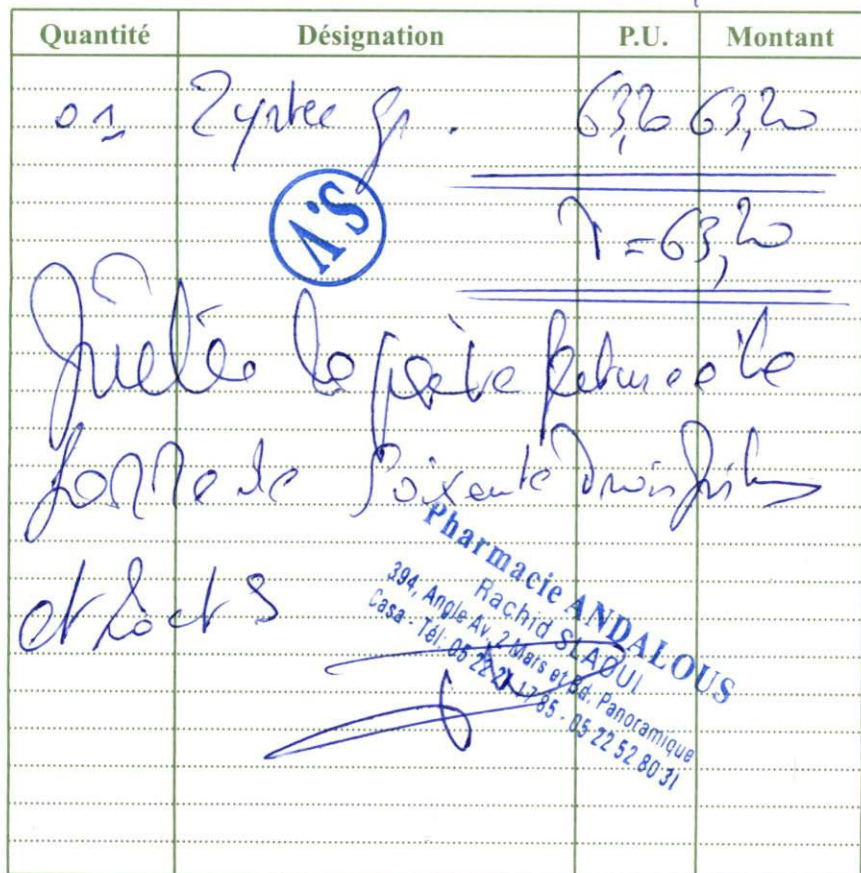 Quantité Désignation P.U. Montant
01 Zyrtec gr. 63,20 63,20
T = 63,20
A.S
la présente facture à la
somme de Soixante Trois
et 20 cts
Pharmacie ANDALOUS
Rachid SLAOUI
394, Angle Av. 2 Mars et Bd. Panoramique
Casa - Tél: 05 22 21 17 85 - 05 22 52 80 31